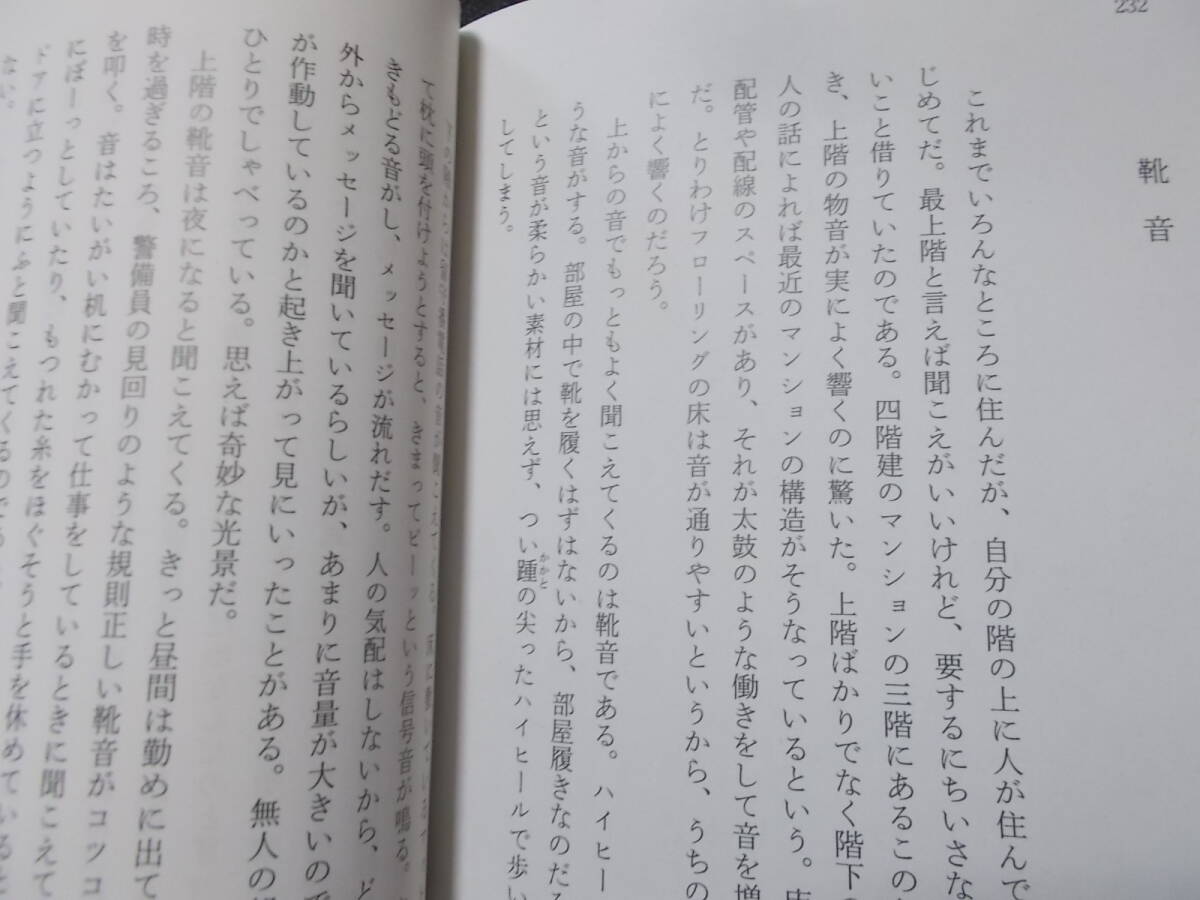 232
靴音
これまでいろんなところに住んだが、自分の階の上に人が住んで
じめてだ。最上階と言えば聞こえがいいけれど、要するにちいさな
いこと借りていたのである。四階建のマンションの三階にあるこの
き、上階の物音が実によく響くのに驚いた。上階ばかりでなく階下の
人の話によれば最近のマンションの構造がそうなっているという。床
配管や配線のスペースがあり、それが太鼓のような働きをして音を増
だ。とりわけフローリングの床は音が通りやすいというから、うちの
によく響くのだろう。
上からの音でもっともよく聞こえてくるのは靴音である。ハイヒー
うな音がする。部屋の中で靴を履くはずはないから、部屋履きなのだろ
という音が柔らかい素材には思えず、つい踵の尖ったハイヒールで歩い
かかと
してしまう。
て枕に頭を付けようとすると、きまってピーッという信号音が鳴る。
きもどる音がし、メッセージが流れだす。人の気配はしないから、ど
外からメッセージを聞いているらしいが、あまりに音量が大きいので
が作動しているのかと起き上がって見にいったことがある。無人の
ひとりでしゃべっている。思えば奇妙な光景だ。
上階の靴音は夜になると聞こえてくる。きっと昼間は勤めに出て
時を過ぎるころ、警備員の見回りのような規則正しい靴音がコツコ
を叩く。音はたいがい机にむかって仕事をしているときに聞こえて
にぼーっとしていたり、もつれた糸をほぐそうと手を休めていると
ドアに立つようにふと聞こえてくるので
ない。